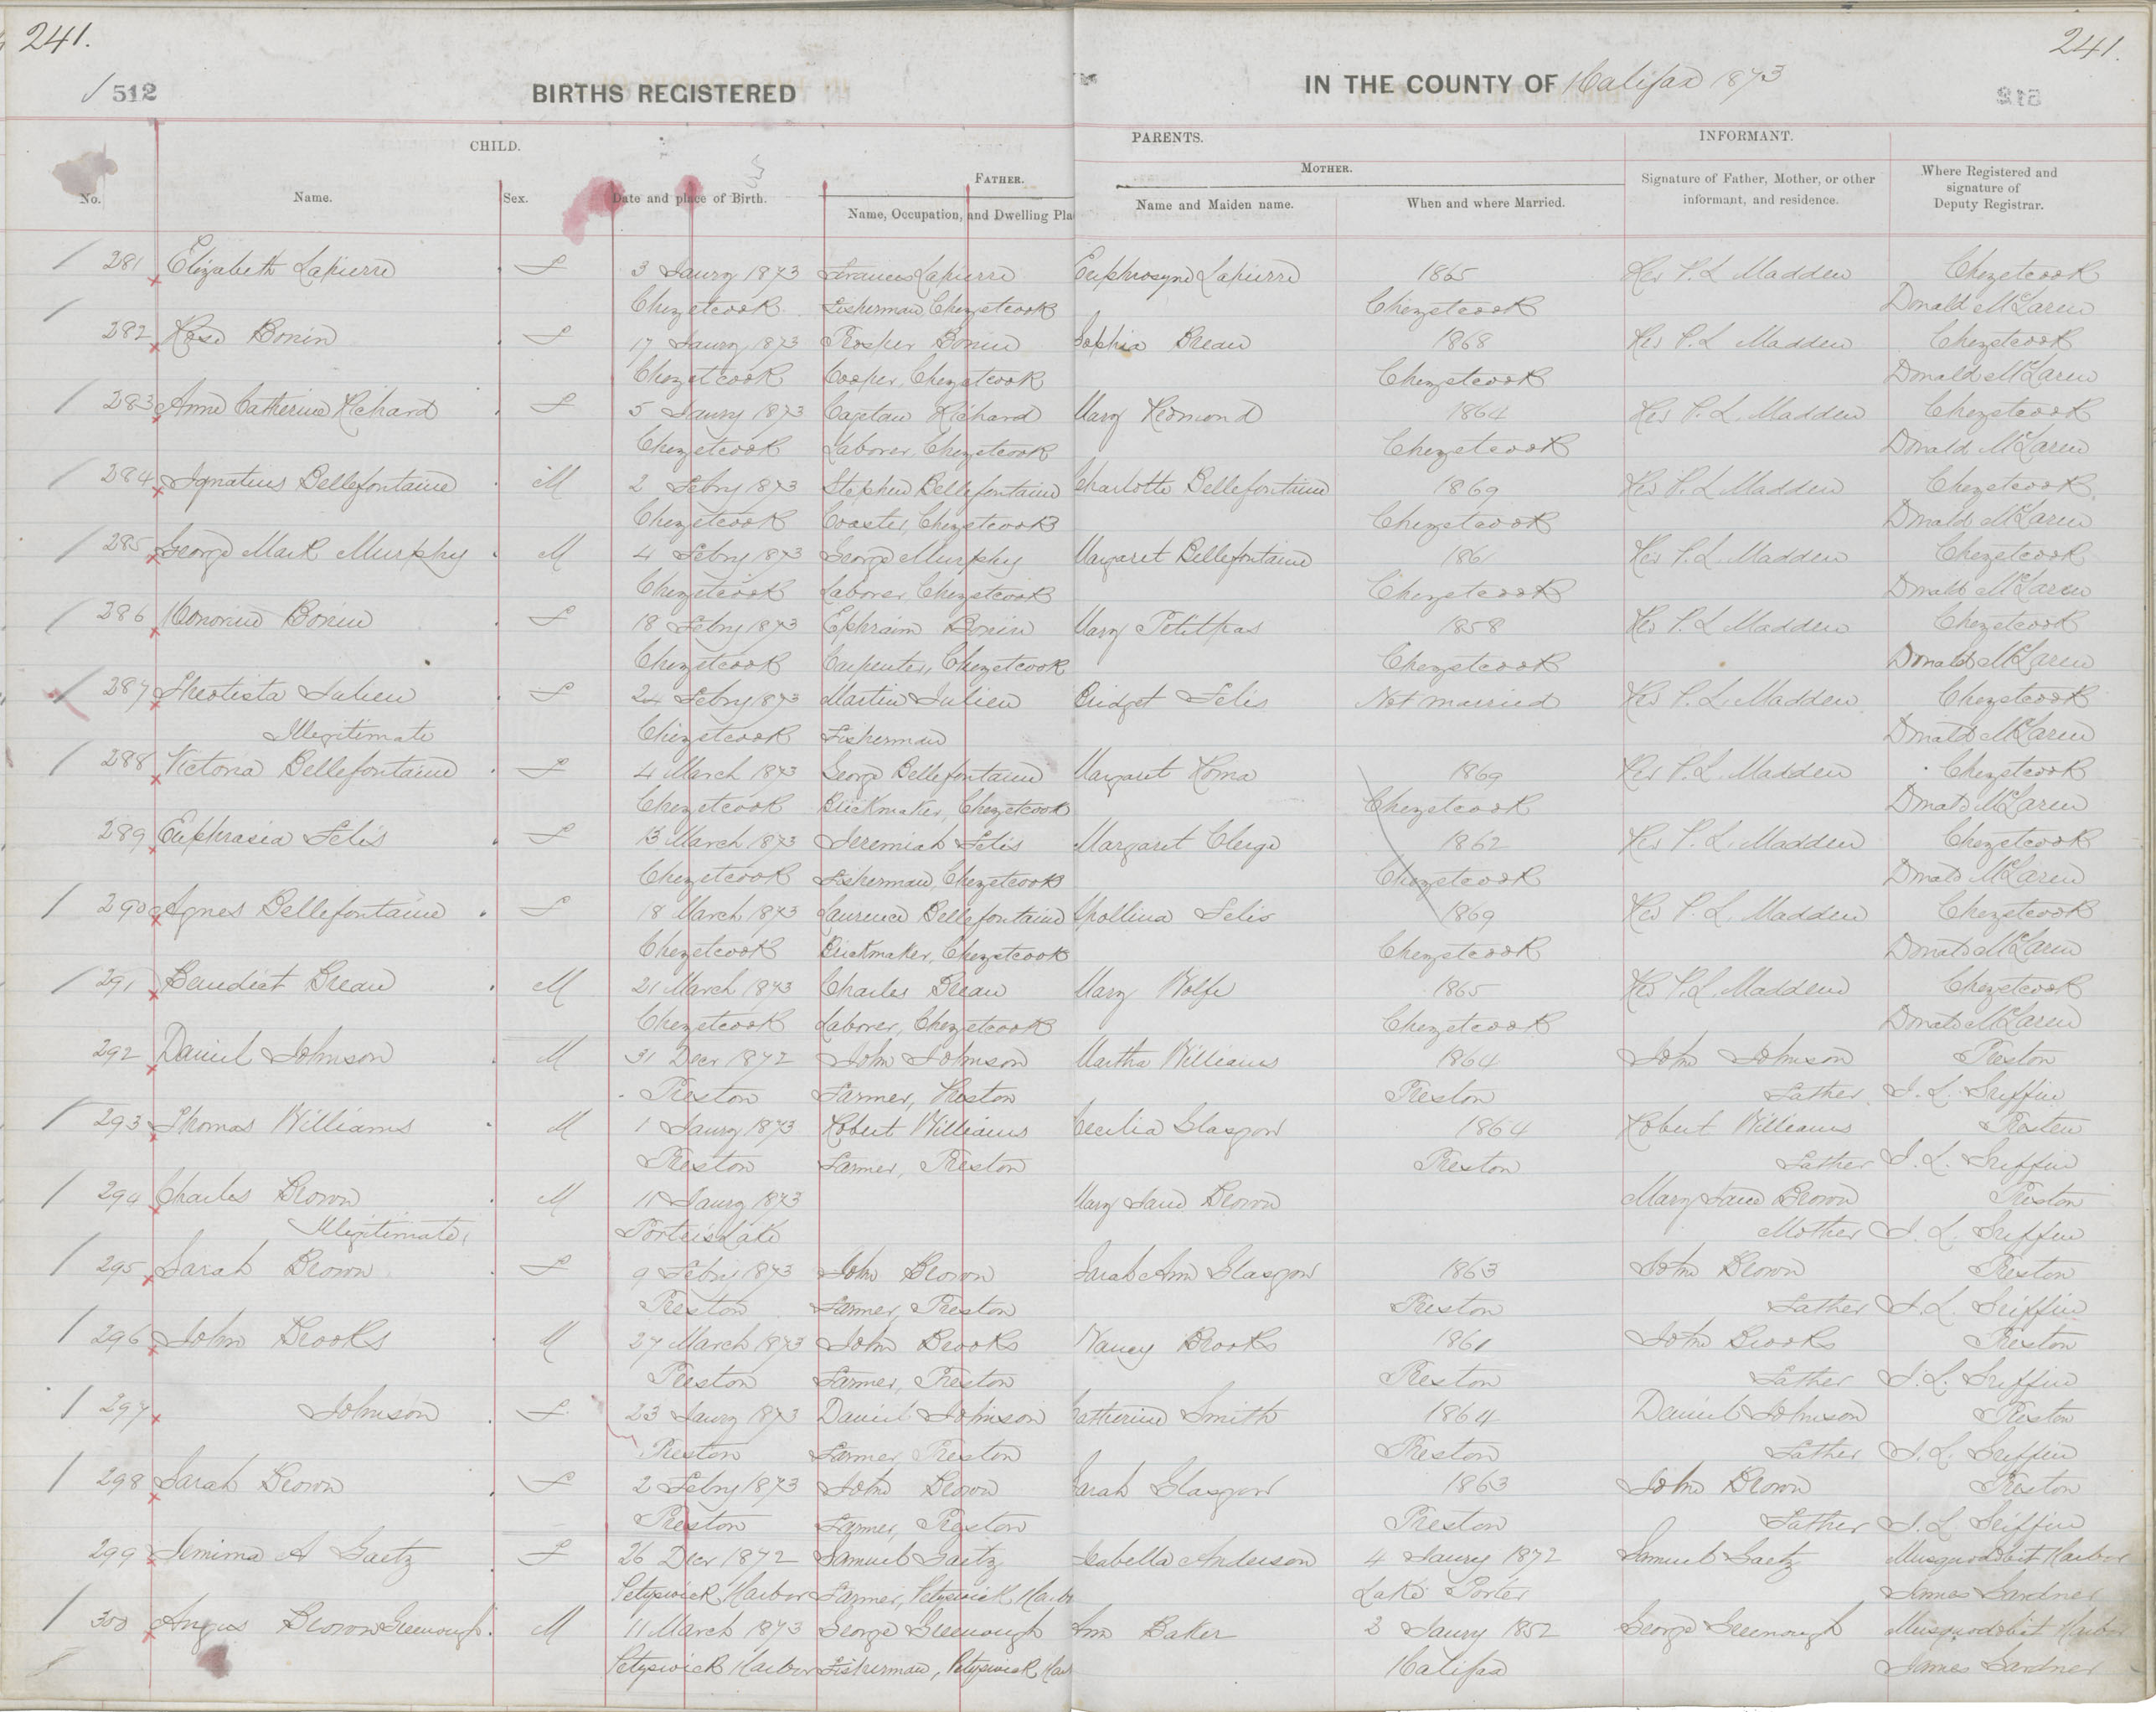 241.
241.
512
BIRTHS REGISTERED
IN THE COUNTY OF Halifax 1873
CHILD.
PARENTS.
INFORMANT.
No.
Name.
Sex.
Date and place of Birth.
FATHER.
Name, Occupation, and Dwelling Pla
MOTHER.
Name and Maiden name.
When and where Married.
Signature of Father, Mother, or other informant, and residence.
Where Registered and signature of Deputy Registrar.
281 Elizabeth Lapierre F 3 Jaury 1873 Frances Lapierre Euphrosyne Lapierre 1865 Rev P. L Madden Chezetcook
Chezetcook Fisherman Chezetcook Chezetcook Donald McLaren
282 Rose Bonin F 17 Jaury 1873 Prosper Bonin Sophia Breau 1868 Rev P. L Madden Chezetcook
Chezetcook Cooper, Chezetcook Chezetcook Donald McLaren
283 Anne Catherine Richard F 5 Jaury 1873 Captan Richard Mary Redmond 1864 Rev P. L. Madden Chezetcook
Chezetcook Laborer, Chezetcook Chezetcook Donald McLaren
284 Ignatius Bellefontaine M 2 Febry 1873 Stephen Bellefontaine Charlotte Bellefontaine 1869 Rev P. L Madden Chezetcook
Chezetcook Coaster, Chezetcook Chezetcook Donald McLaren
285 George Mark Murphy M 4 Febry 1873 George Murphy Margaret Bellefontaine 1861 Rev P. L. Madden Chezetcook
Chezetcook Laborer, Chezetcook Chezetcook Donald McLaren
286 Honorine Bonin F 18 Febry 1873 Ephraim Bonin Mary Petitpas 1858 Rev P. L Madden Chezetcook
Chezetcook Carpenter, Chezetcook Chezetcook Donald McLaren
287 Theotista Julien F 24 Febry 1873 Martin Julien Bridget Felis Not married Rev P. L. Madden Chezetcook
Illegitimate Chezetcook Fisherman Donald McLaren
288 Victoria Bellefontaine F 4 March 1873 George Bellefontaine Margaret Roma 1869 Rev P. L. Madden Chezetcook
Chezetcook Brickmaker, Chezetcook Chezetcook Donald McLaren
289 Euphrasia Felis F 13 March 1873 Jeremiah Felis Margaret Clergé 1862 Rev P. L. Madden Chezetcook
Chezetcook Fisherman, Chezetcook Chezetcook Donald McLaren
290 Agnes Bellefontaine F 18 March 1873 Laurence Bellefontaine Apollina Felis 1869 Rev P. L. Madden Chezetcook
Chezetcook Brickmaker, Chezetcook Chezetcook Donald McLaren
291 Benedict Breau M 21 March 1873 Charles Breau Mary Wolfe 1865 Rev P. L. Madden Chezetcook
Chezetcook Laborer, Chezetcook Chezetcook Donald McLaren
292 Daniel Johnson M 31 Decr 1872 John Johnson Martha Williams 1864 John Johnson Preston
Preston Farmer, Preston Preston Father J. L. Griffin
293 Thomas Williams M 1 Jaury 1873 Robert Williams Cecilia Glasgow 1864 Robert Williams Preston
Preston Farmer, Preston Preston Father J. L. Griffin
294 Charles Brown M 11 Jaury 1873 Mary Jane Brown Mary Jane Brown Preston
Illegitimate Porters Lake Mother J. L. Griffin
295 Sarah Brown F 9 Febry 1873 John Brown Sarah Ann Glasgow 1863 John Brown Preston
Preston Farmer, Preston Preston Father J. L. Griffin
296 John Brooks M 27 March 1873 John Brooks Nancy Brooks 1861 John Brooks Preston
Preston Farmer, Preston Preston Father J. L. Griffin
297 Johnson F 23 Jaury 1873 Daniel Johnson Catherine Smith 1864 Daniel Johnson Preston
Preston Farmer, Preston Preston Father J. L. Griffin
298 Sarah Brown F 2 Febry 1873 John Brown Sarah Glasgow 1863 John Brown Preston
Preston Farmer, Preston Preston Father J. L. Griffin
299 Jemima A Gaetz F 26 Decr 1872 Samuel Gaetz Isabella Anderson 4 Jaury 1872 Samuel Gaetz Musquodobit Harbor
Petpswick Harbor Farmer, Petpswick Harbo Lake Porter James Gardner
300 Angus Brown Greenough M 11 March 1873 George Greenough Ann Baker 3 Jaury 1852 George Greenough Musquodobit Harbor
Petpswick Harbor Fisherman, Petpswick Har Halifax James Gardner